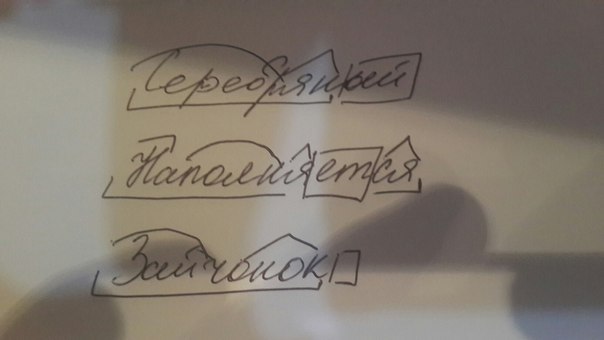 Серебряный
Наполняется
Зайчонок